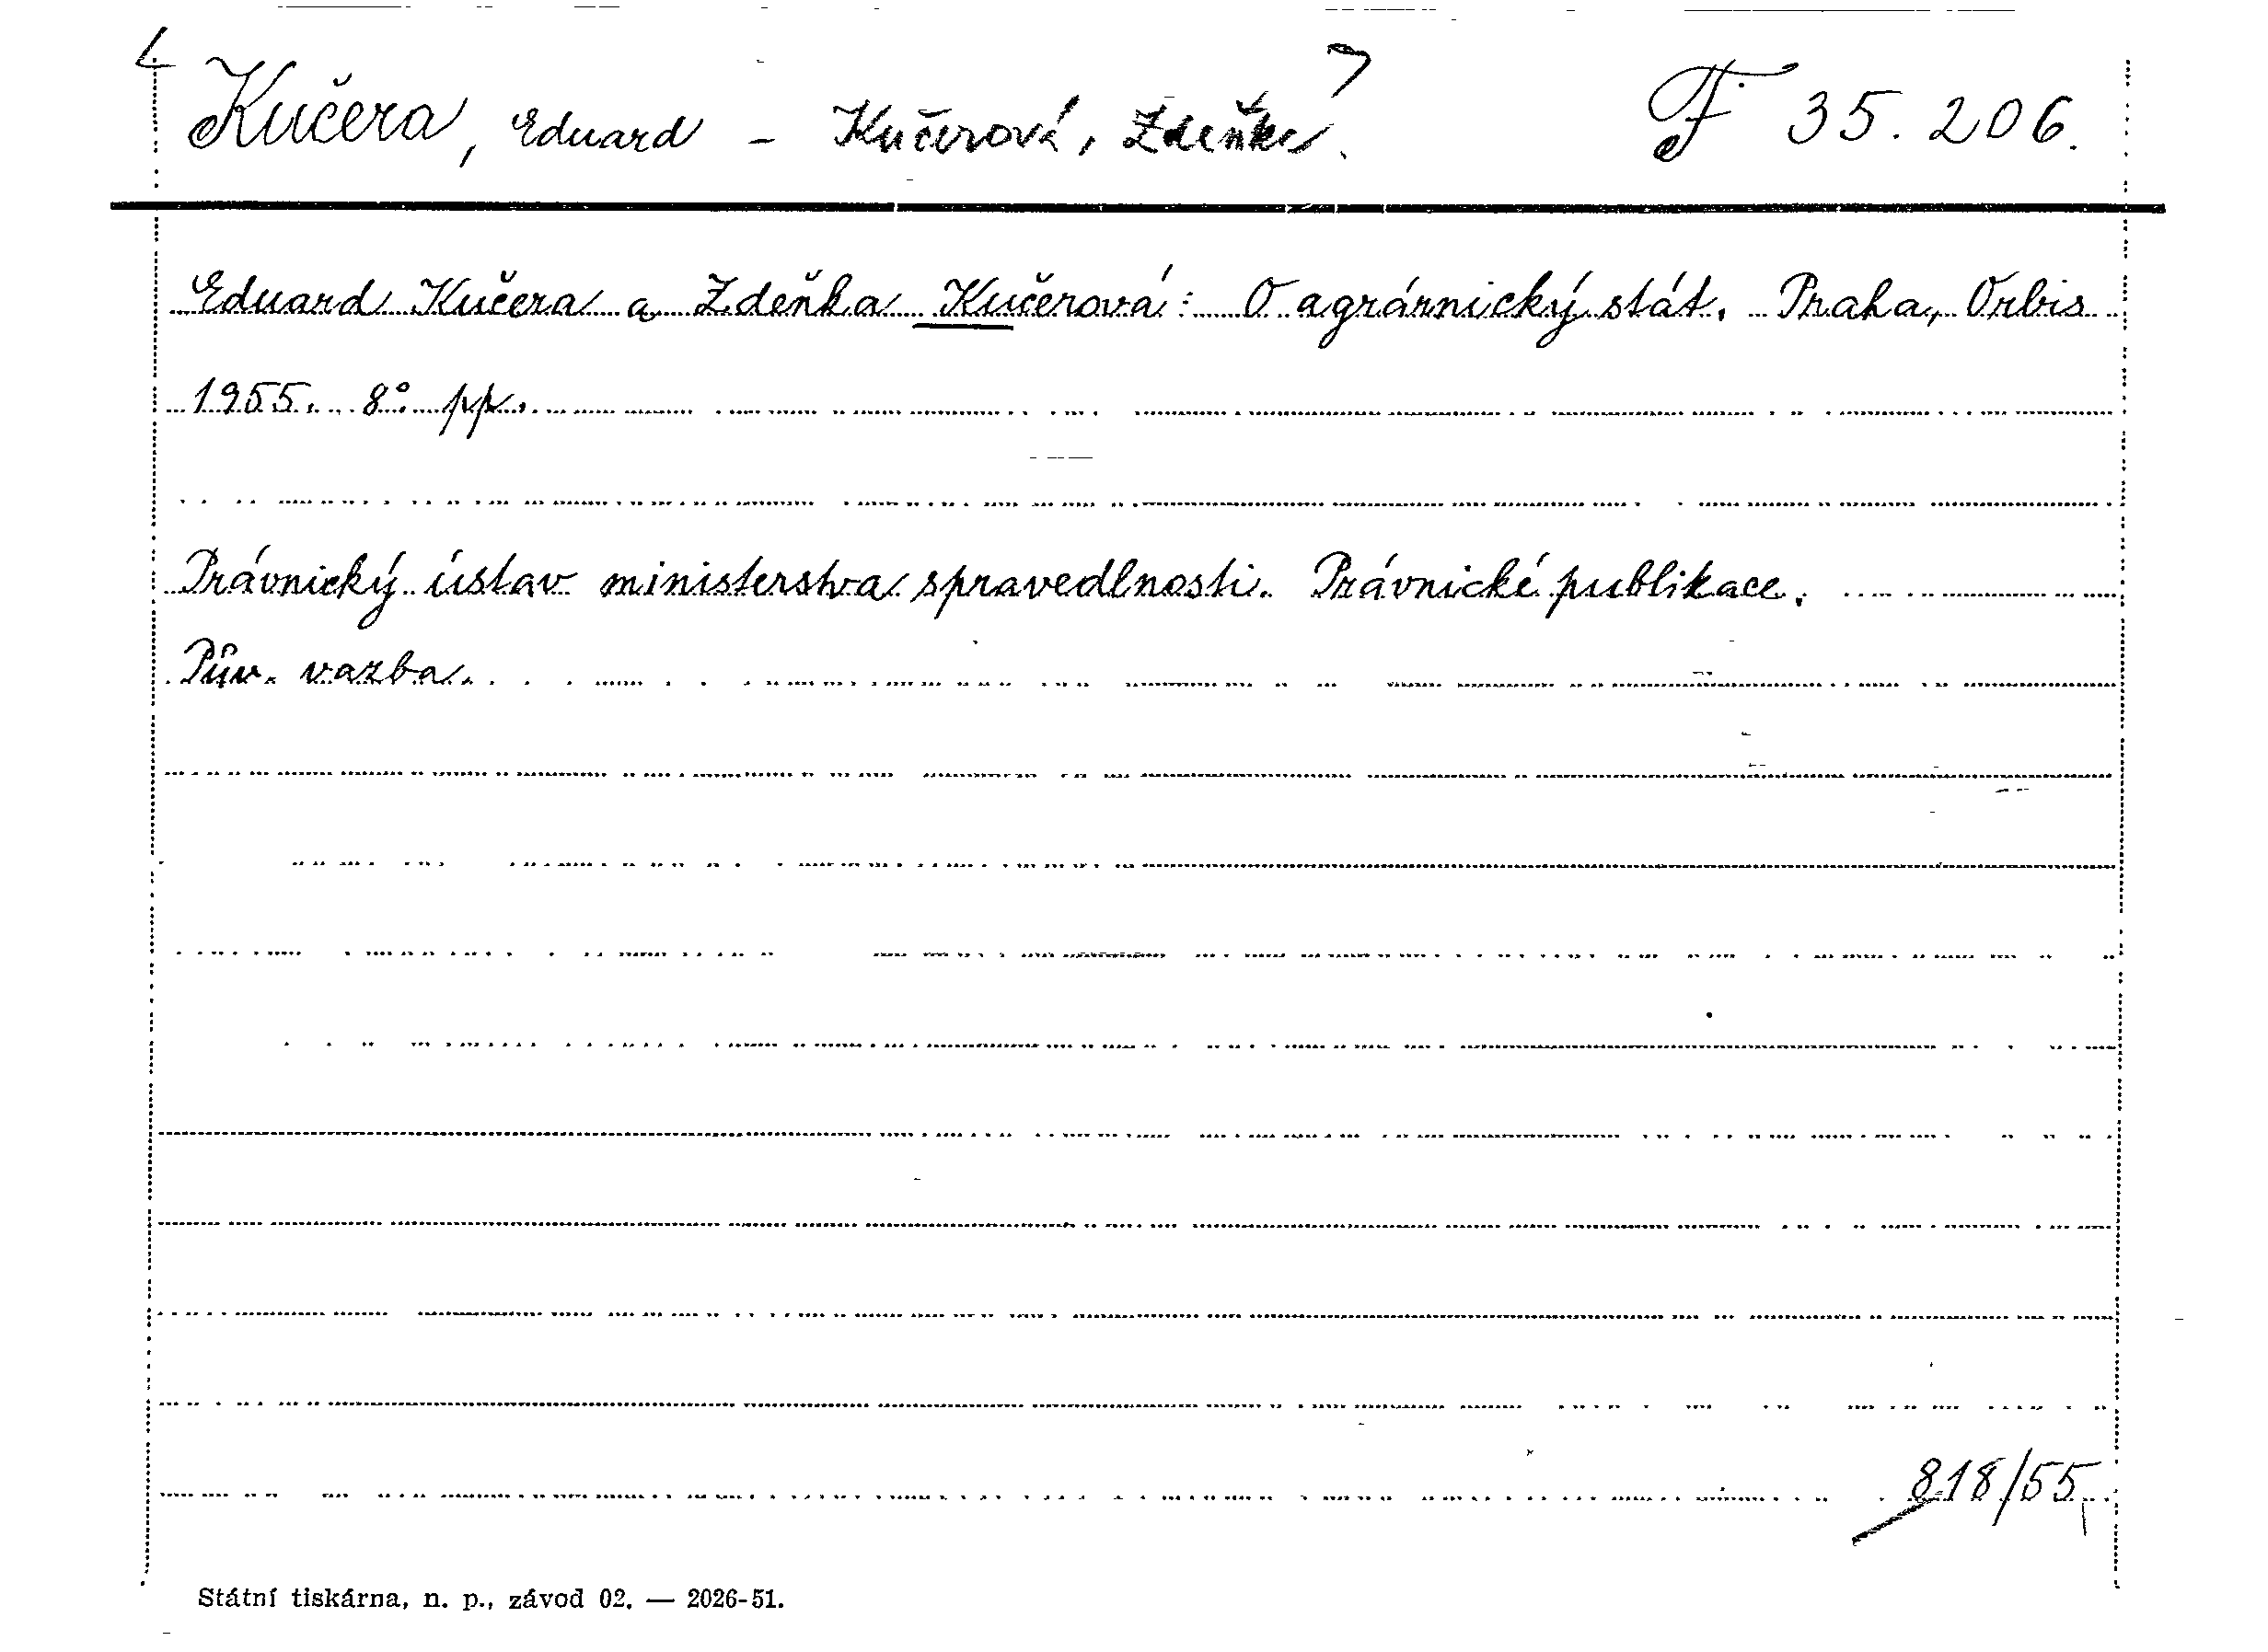 Kučera, Eduard - Kučerová, Zdeňka. F 35.206.
Eduard Kučera a Zdeňka Kučerová: O agrárnický stát. Praha, Orbis
1955. 8° pp.
Právnický ústav ministerstva spravedlnosti. Právnické publikace.
Pův. vazba.
818/55
Státní tiskárna, n. p., závod 02. — 2026-51.